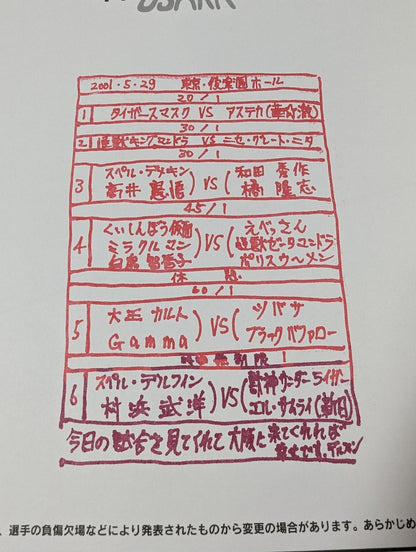 OSAKA
2001・5・29 東京・後楽園ホール
20/1
1 タイガースマスク VS アステカ(華☆激)
30/1
2 怪獣キングマンドラ VS ニセ・グレート・ニタ
30/1
3 スペル・デメキン 高井憲悟) VS (和田秀作 橘隆志
45/1
4 くいしんぼう仮面 ミラクルマン 白鳥智香子) VS (えべっさん 怪獣ゼータマンドラ ポリスウ〜メン
休憩
60/1
5 大王カルト Gamma) VS (ツバサ ブラックバファロー
時間無制限 1
6 スペル・デルフィン 村浜武洋) VS (獣神サンダーライガー エル・サムライ(新日)
今日の試合を見てくれて大阪に来てくれれば
幸せです。デルフィン
、選手の負傷欠場などにより発表されたものから変更の場合があります。あらかじめ